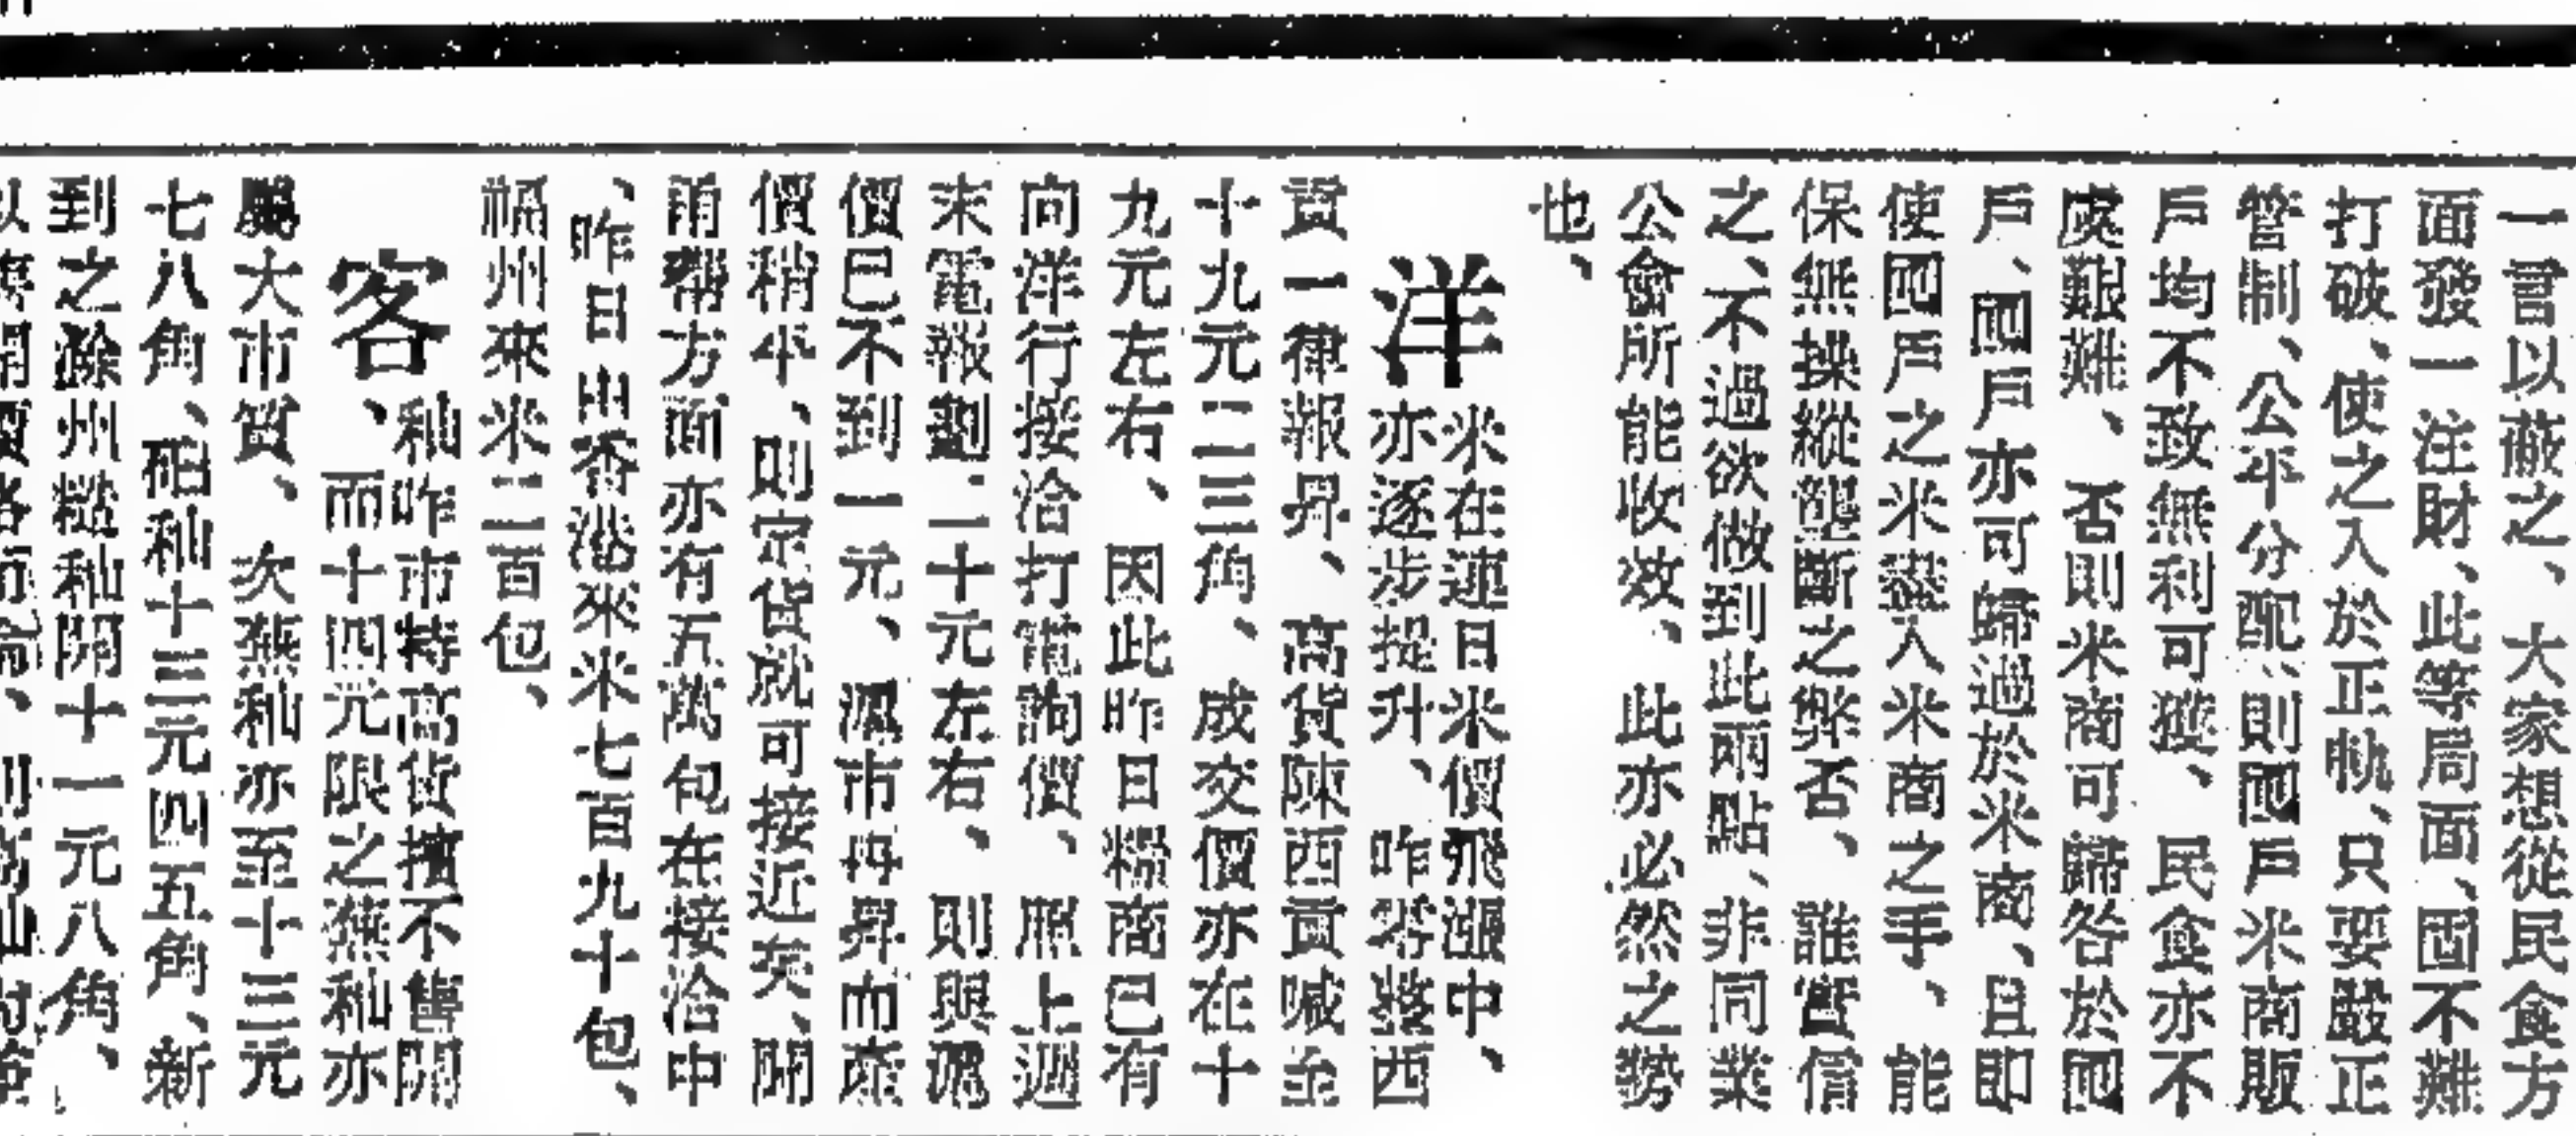 一言以蔽之、大家想從民食方
面發一注財、此等局面、固不難
打破、使之入於正軌、只要嚴正
管制、公平分配、則囤戶米商販
戶均不致無利可獲、民食亦不
虞艱難、否則米商可歸咎於囤
戶、囤戶亦可歸過於米商、且即
使囤戶之米盡入米商之手、能
保無操縱壟斷之弊否、誰實信
之、不過欲做到此兩點、非同業
公會所能收效、此亦必然之勢
也、
洋米在連日米價飛漲中、
亦逐步提升、昨零躉西
貢一律報昇、高貨陳西貢喊至
十九元二三角、成交價亦在十
九元左右、因此昨日糧商已有
向洋行接洽打電詢價、照上週
末電報劃二十元左右、則與滬
價已不到一元、滬市再昇而產
價稍平、則京貨就可接近矣、聞
甬幫方面亦有五萬包在接洽中
、昨日由香港來米七百九十包、
福州來米二百包、
客秈昨市特高貨擯不售開
、而十四元限之蕪秈亦
屬大市貨、次蕪秈亦至十三元
七八角、稻秈十三元四五角、新
到之滁州糙秈開十一元八角、